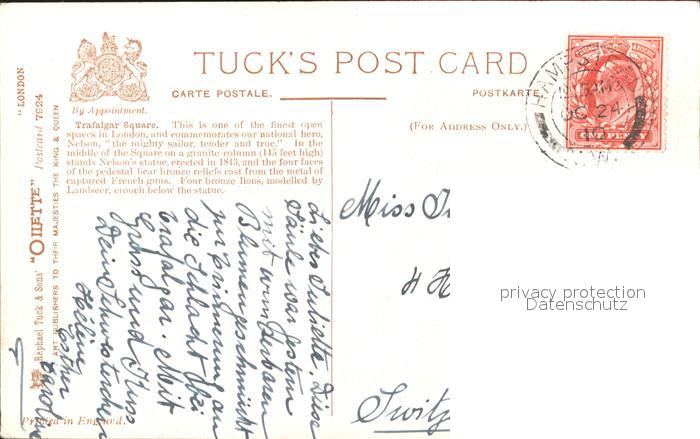 TUCK'S POST CARD
CARTE POSTALE.
POSTKARTE
By Appointment.
(FOR ADDRESS ONLY.)
Trafalgar Square. This is one of the finest open
spaces in London, and commemorates our national hero,
Nelson, "the mighty sailor, tender and true." In the
middle of the Square on a granite column (145 feet high)
stands Nelson's statue, erected in 1843, and the four faces
of the pedestal bear bronze reliefs cast from the metal of
captured French guns. Four bronze lions, modelled by
Landseer, crouch below the statue.
"LONDON
Raphael Tuck & Sons' "OILETTE" Postcard 7924
ART PUBLISHERS TO THEIR MAJESTIES THE KING & QUEEN
Liebes Juliette. Diese
Säule war gestern
mit wunderbaren
Blumen geschmückt
zur Erinnerung an
die Schlacht bei
Trafalgar. Mit
Gruss und Kuss
Dein Schwesterchen
Miss
4 H
Switz
HAMPST
OC 24
N.W.
POSTAGE & REVENUE
ONE PENNY
privacy protection
Datenschutz
Printed in England.